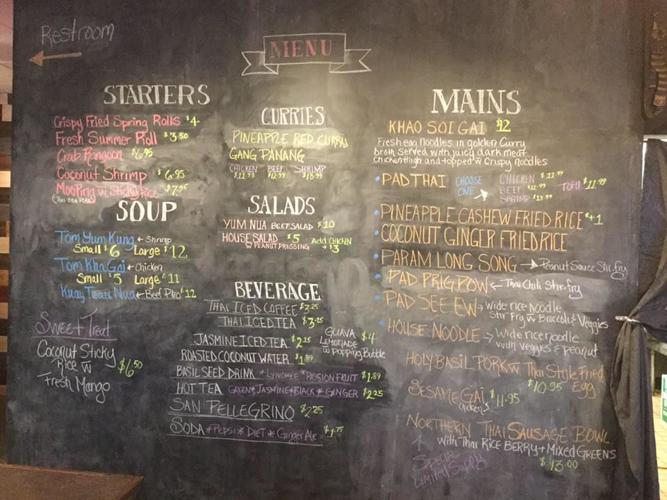 Restroom
MENU
STARTERS
Crispy Fried Spring Rolls $4
Fresh Summer Roll $3.50
Crab Rangoon $6.95
Coconut Shrimp $6.95
Mooping w/ Sticky Rice $7.95
SOUP
Tom Yum Kung ← Shrimp
Small $6 Large $12
Tom Kha Gai ← Chicken
Small $5 Large $11
Nua ← Beef Pho $12
Sweet Treat
Coconut Sticky
Rice w/
Fresh Mango
$6.50
CURRIES
PINEAPPLE RED CURRY
GANG PANANG
CHICKEN BEEF SHRIMP
$11.99 $12.99 $13.99
SALADS
YUM NUA BEEF SALAD $10
HOUSE SALAD $5
w/ PEANUT DRESSING
Add Chicken
$3
BEVERAGE
THAI ICED COFFEE $3.25
THAI ICED TEA $3.25
JASMINE ICED TEA $2.25
ROASTED COCONUT WATER $1.89
GUAVA
LEMONADE
w/ popping Bubble
$4
BASIL SEED DRINK * LYNCHEE * PASSION FRUIT $1.89
HOT TEA GREEN * JASMINE * BLACK * GINGER $2.25
SAN PELLEGRINO $2.25
SODA * PEPSI * DIET * Ginger Ale $1.75
MAINS
KHAO SOI GAI $12
Fresh egg Noodles in golden Curry
broth Served with juicy dark meat
Chicken thigh and topped w/ Crispy noodles
PAD THAI
CHOOSE
ONE
CHICKEN $11.99
BEEF $12.99
SHRIMP $13.99
TOFU $11.99
PINEAPPLE CASHEW FRIED RICE $+1
COCONUT GINGER FRIED RICE
PARAM LONG SONG → Peanut Sauce Stir fry
PAD PRIG POW ← Thai Chili Stir fry
PAD SEE EW → Wide rice noodle
Stir Fry w/ Broccoli & Veggies
HOUSE NOODLE → Wide rice noodle
with veggies & peanut
HOLY BASIL PORK w/ Thai Style Fried
Egg
$10.95
SESAME GAI $11.95
NORTHERN THAI SAUSAGE BOWL
with THAI RICE BERRY + MIXED GREENS
$13.00
SPECIAL
Limited Supply